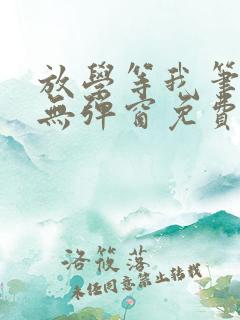 放學等我筆
無彈窗免費
洛筱落
未任同意禁止轉載